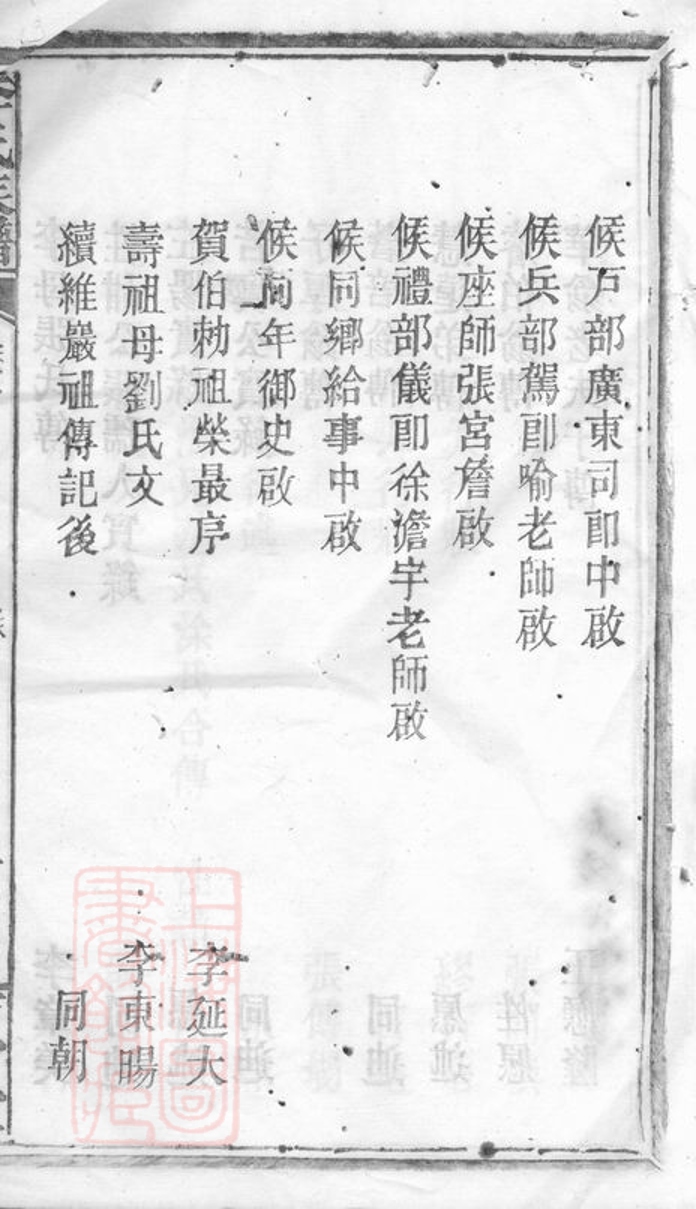 候戸部廣東司郎中啟
候兵部駕郎喻老師啟
候座師張宮詹啟
候禮部儀郎徐澹宇老師啟
候同鄉給事中啟
候同年御史啟
賀伯勅祖榮最序 李延大
壽祖母劉氏文 李東暘
續維巖祖傳記後 同朝
李氏族譜
上海圖書館藏